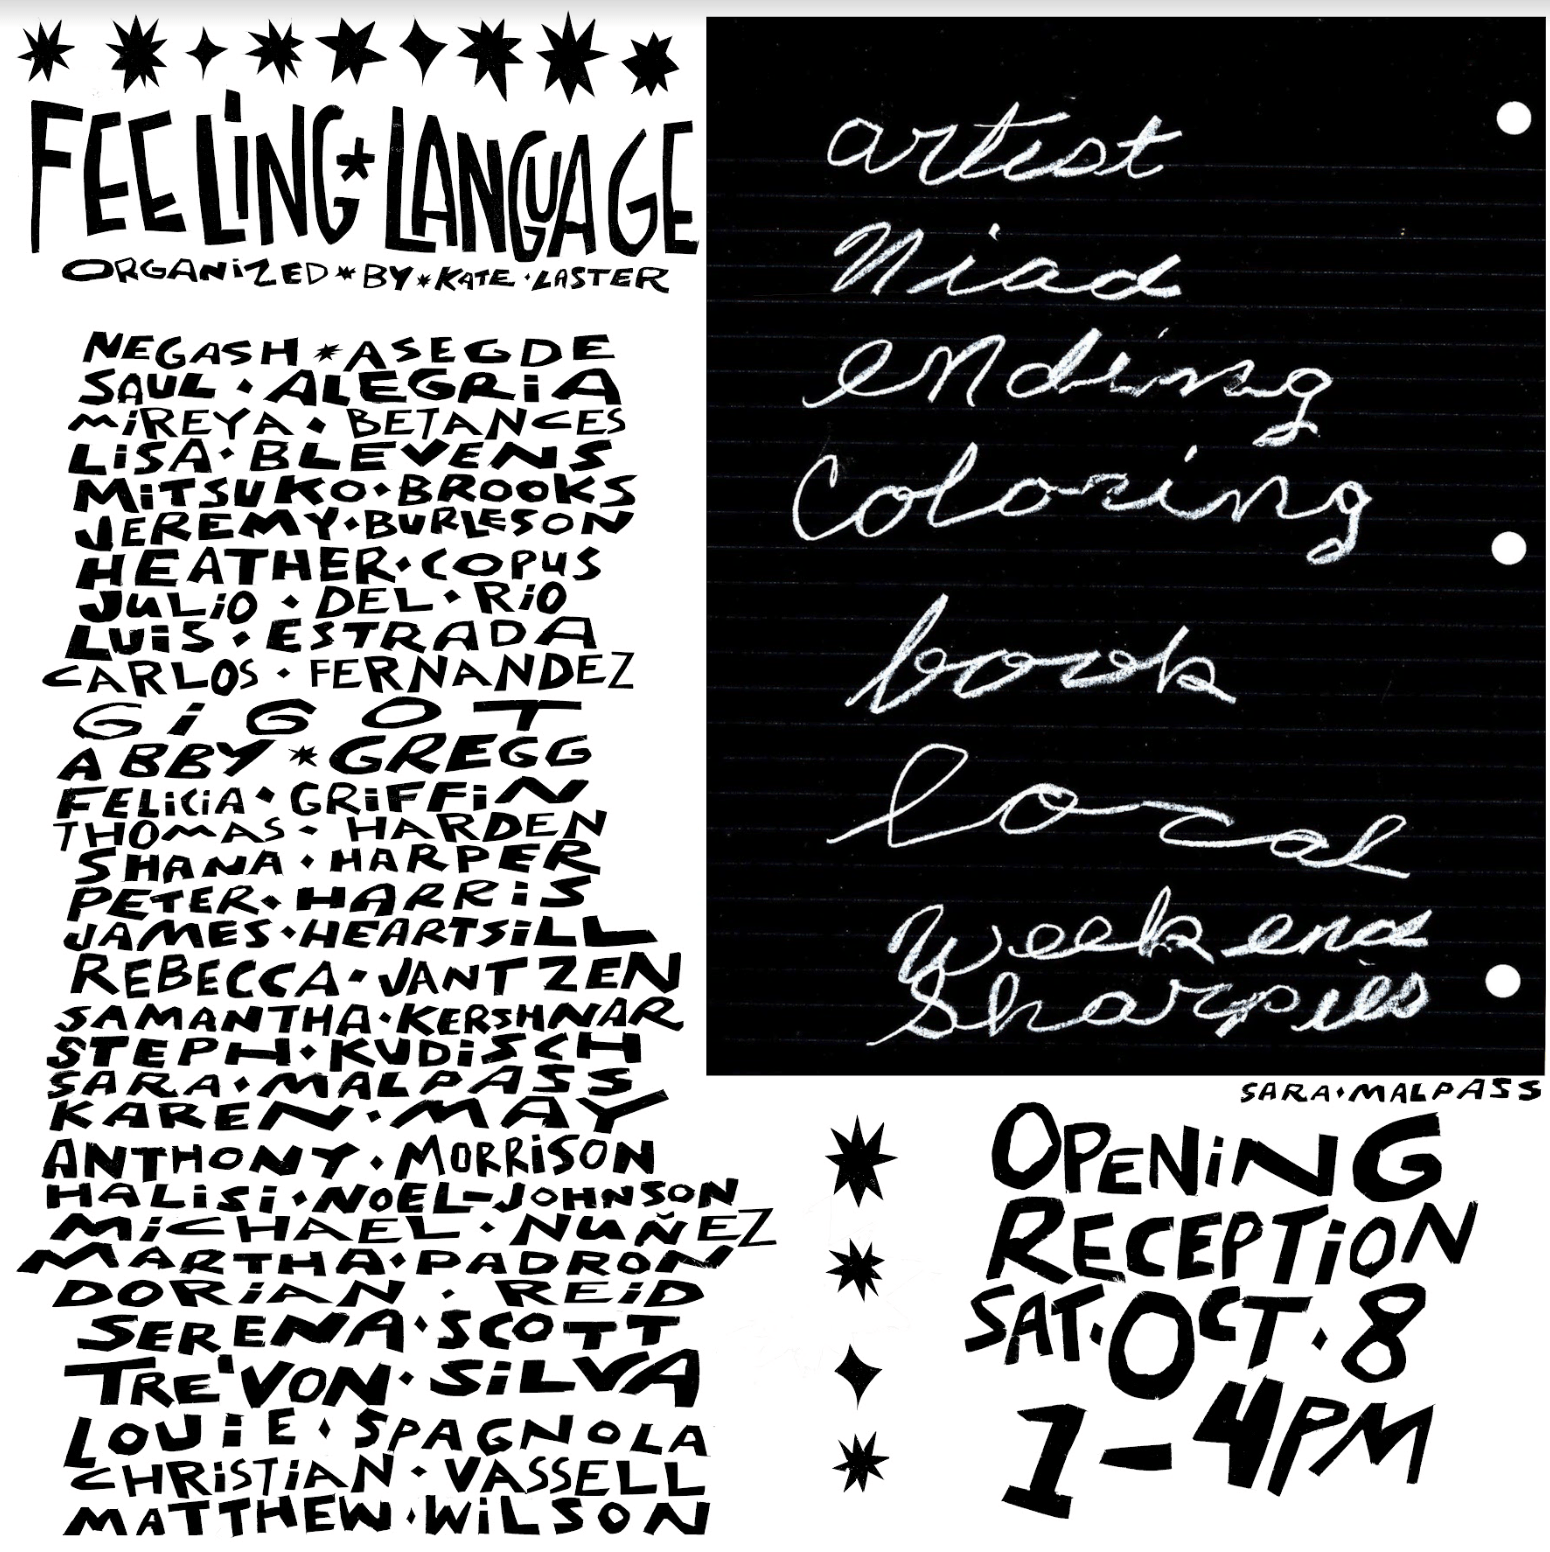 FEELiNG*LANGUAGE
ORGANiZED*BY*KATE·LASTER
NEGASH*ASEGDE
SAUL·ALEGRiA
MiREYA·BETANCES
LiSA·BLEVENS
MiTSUKO·BROOKS
JEREMY·BURLESON
HEATHER·COPUS
JULiO·DEL·RiO
LUiS·ESTRADA
CARLOS·FERNANDEZ
GiGOT
ABBY*GREGG
FELiCiA·GRiFFiN
THOMAS·HARDEN
SHANA·HARPER
PETER·HARRiS
JAMES·HEARTSiLL
REBECCA·JANTZEN
SAMANTHA·KERSHNAR
STEPH·KUDiSCH
SARA·MALPASS
KAREN·MAY
ANTHONY·MORRiSON
HALiSi·NOEL-JOHNSON
MiCHAEL·NUÑEZ
MARTHA·PADRON
DORiAN·REiD
SERENA·SCOTT
TRE'VON·SiLVA
LOUiE·SPAGNOLA
CHRiSTiAN·VASSELL
MATTHEW·WiLSON
artist
Niad
ending
Coloring
book
local
weekend
Sharpies
SARA·MALPASS
OPENiNG
RECEPTiON
SAT·OCT·8
1-4PM